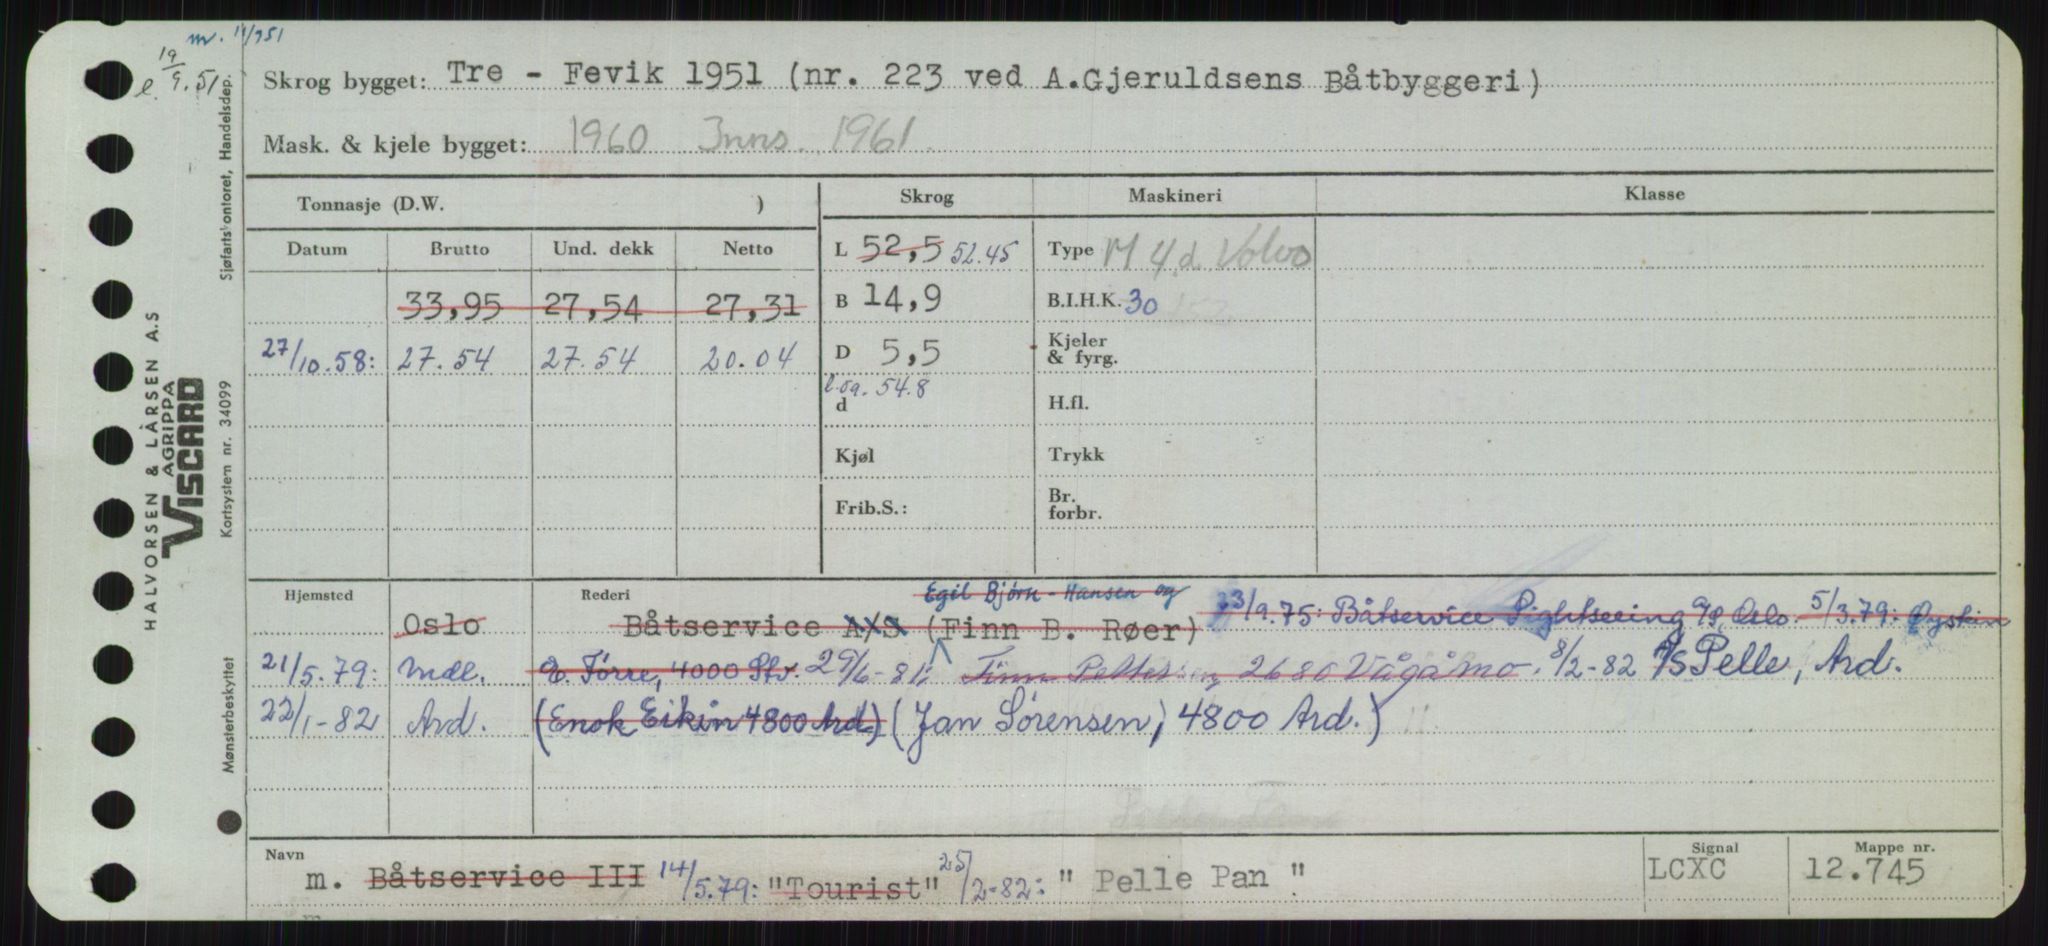 m. 11/951
e. 19/9.51
Skrog bygget: Tre - Fevik 1951 (nr. 223 ved A.Gjeruldsens Båtbyggeri)
Mask. & kjele bygget: 1960 Inns. 1961.
Tonnasje (D.W. )
Skrog
Maskineri
Klasse
Datum Brutto Und. dekk Netto
33,95 27,54 27,31
27/10.58: 27.54 27.54 20.04
L 52,5 52.45
B 14,9
D 5,5
l.oa. 54.8
d
Kjøl
Frib.S.:
Type M 4 d. Volvo
B.I.H.K. 30
Kjeler
& fyrg.
H.fl.
Trykk
Br.
forbr.
Hjemsted
Rederi
Egil Bjørn-Hansen og
Oslo Båtservice A/S (Finn B. Røer) 23/9.75: Båtservice Sightseeing A/S, Oslo. 5/3.79: Øystein
21/5.79: Mdl. E. Tørre, 4000 Stv. 29/6-81: Finn Pettersen, 2680 Vågåmo. 8/2-82 A/S Pelle, Ard.
22/1-82 Ard. (Enok Eikin 4800 Ard) (Jan Sørensen, 4800 Ard.)
Navn
m. Båtservice III 14/5.79: "Tourist" 25/2-82: " Pelle Pan "
Signal
LCXC
Mappe nr.
12.745
m
HALVORSEN & LARSEN A.S
AGRIPPA
VISCARD
Sjøfartskontoret, Handelsdep.
Kortsystem nr. 34099
Mønsterbeskyttet